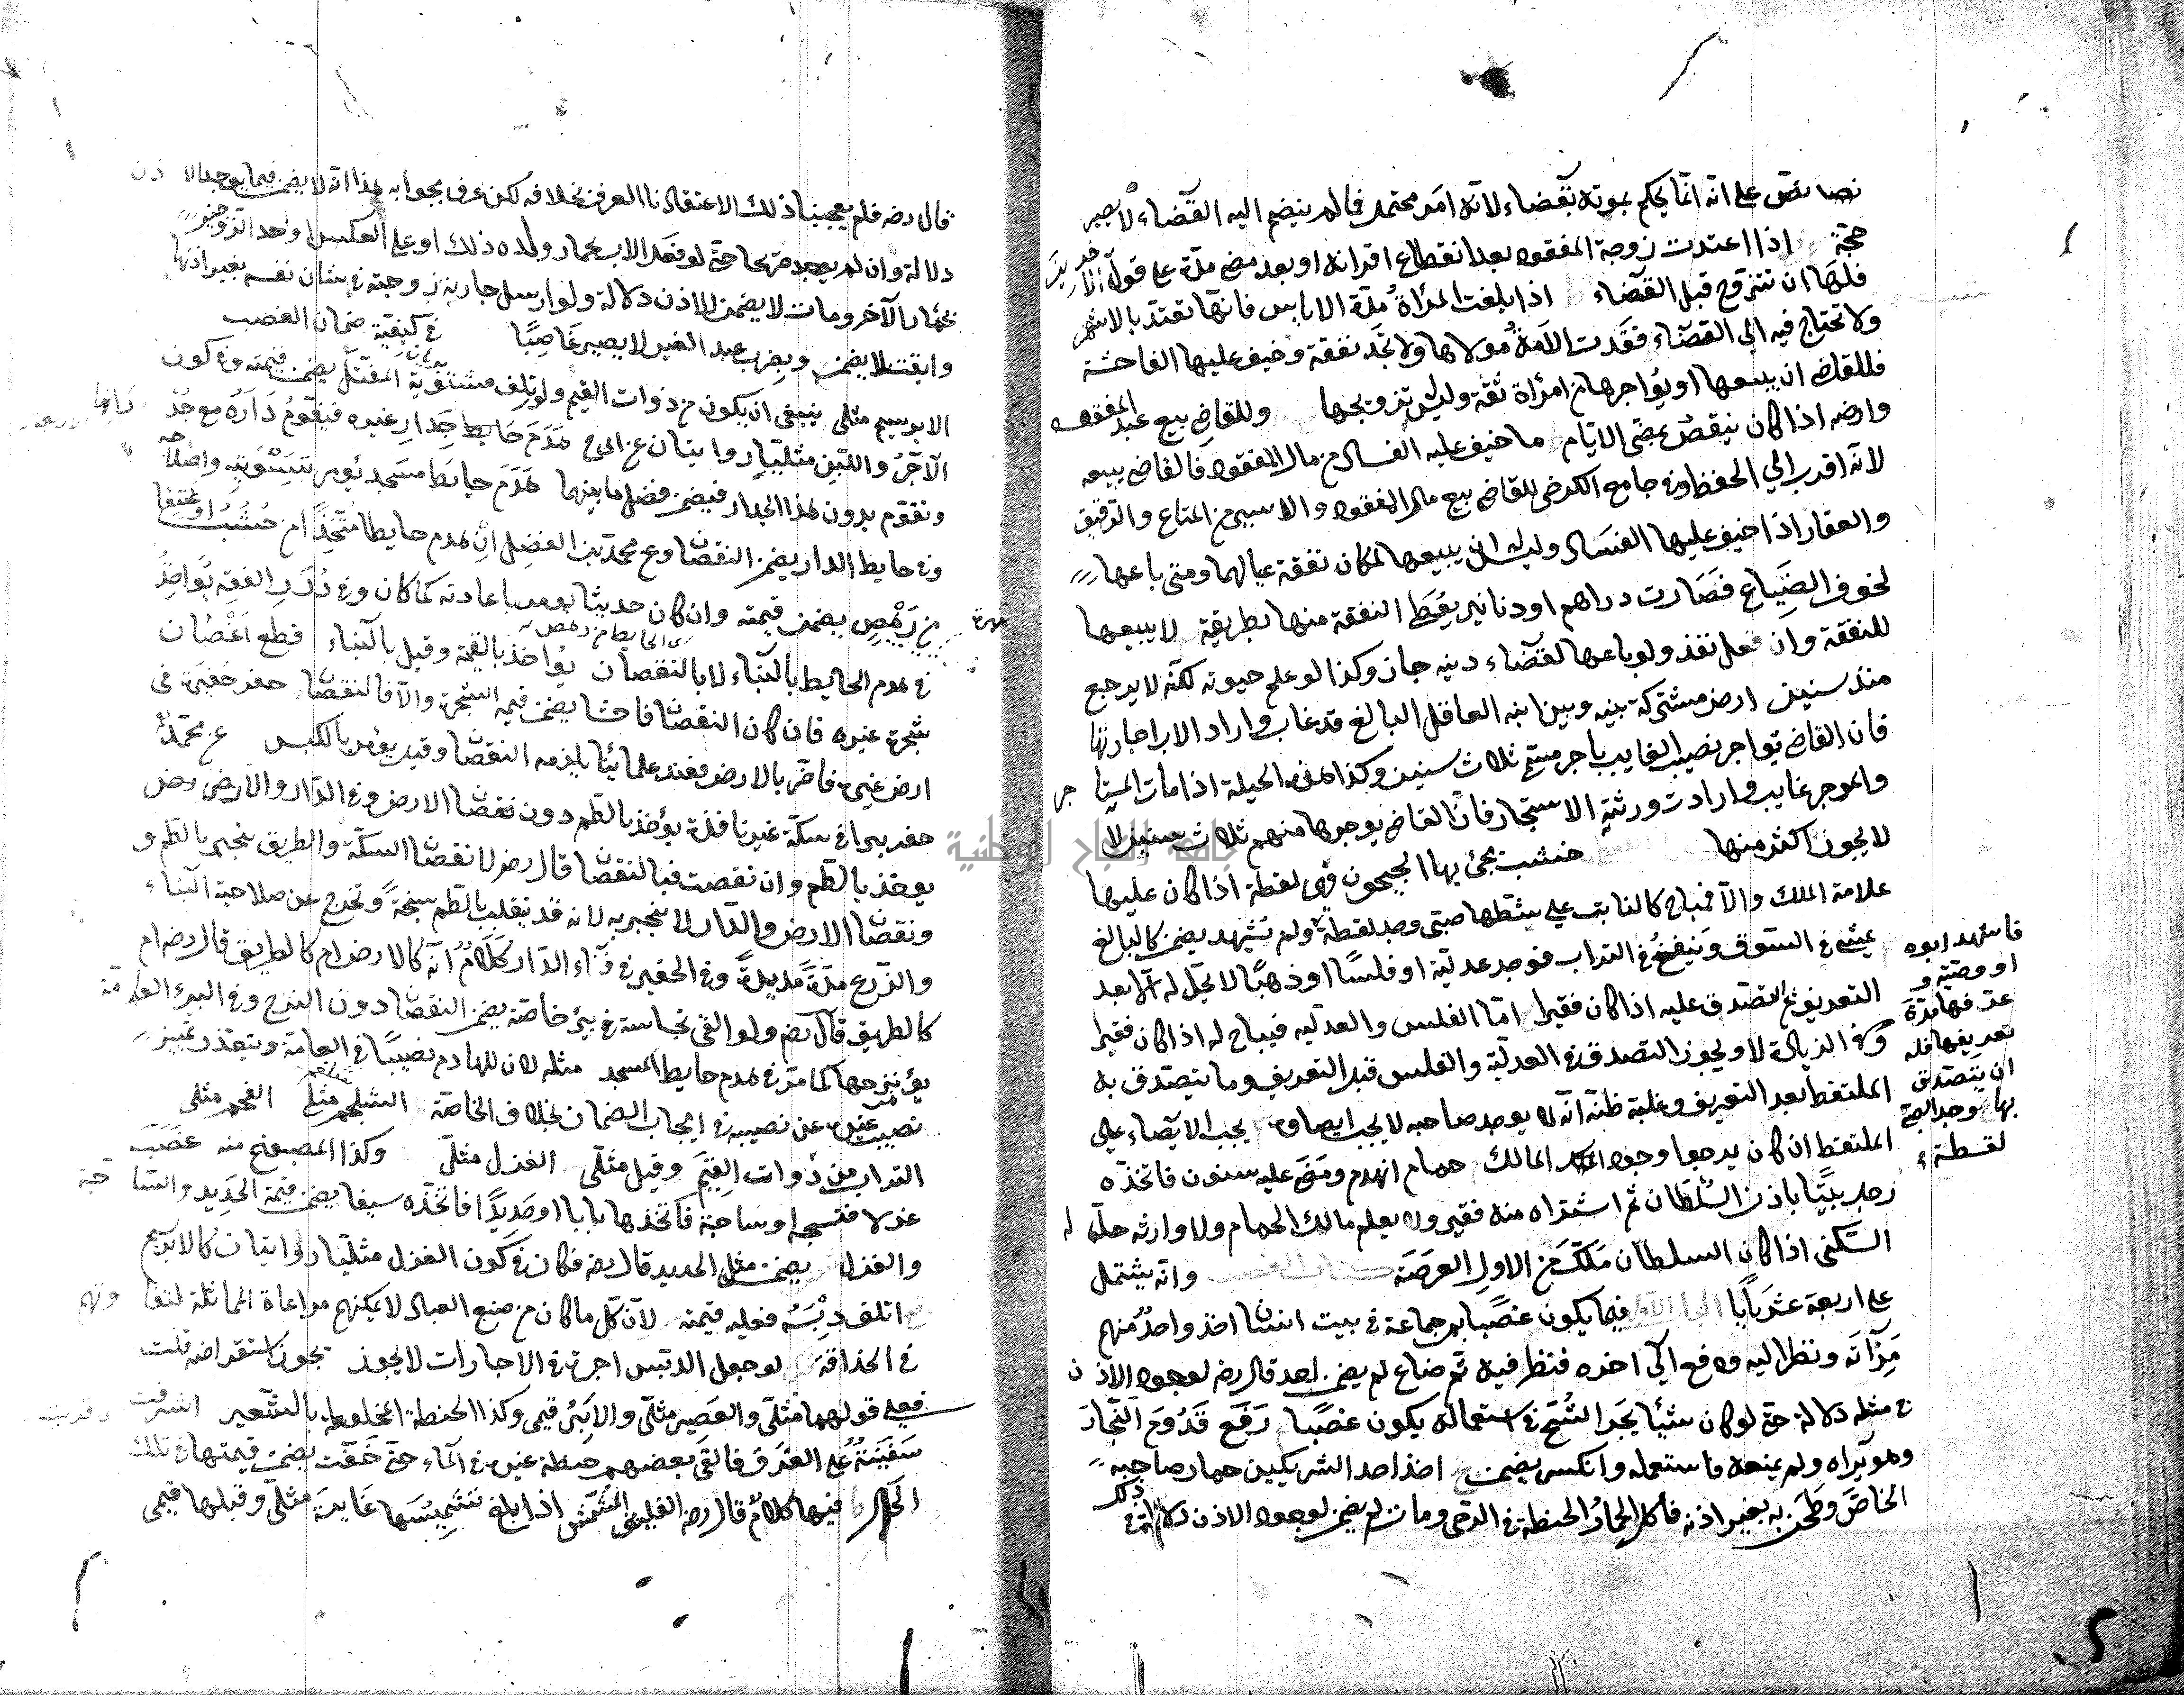 نصا نص على انه انما يحكم بموته بقضاء لانه امر محتمل فما لم ينضم اليه القضاء لا يصير
حجة اذا اعتدت زوجة المفقود بعد انقطاع اقرانه او بعد مضى مدة على قول
فلها ان تتزوج قبل القضاء اذا بلغت المرأة مدة الاياس فانها تعتد بالاشهر
ولا تحتاج فيه الى القضاء فقدت الامة مولاها ولا تجد نفقة وخيف عليها الفاحشة
فللقاضى ان يبيعها او يؤاجرها من امرأة ثقة وليس له تزويجها وللقاضى بيع عبد المفقود
وارضه اذا كان ينقص بمضى الايام ما خيف عليه الفساد من مال المفقود فالقاضى يبيعه
لانه اقرب الى الحفظ وفى جامع الكرخى للقاضى بيع مال المفقود والاسير من المتاع والرقيق
والعقار اذا خيف عليها الفساد وليس له ان يبيعها لمكان نفقة عيالهما ومتى باعها
لخوف الضياع فصارت دراهم او دنانير يعطى النفقة منها بطريقة لا يبيعها
للنفقة وان فعل نفذ ولو باعها لقضاء دينه جاز وكذا لو علم حيوته لكنه لا يرجع
منذ سنين ارض مشتركة بينه وبين ابنه العاقل البالغ قد غاب واراد الاب اجارتها
فان القاضى يؤاجر نصيب الغايب باجر مسمى ثلاث سنين وكذا هذه الحيلة اذا مات المستاجر
والموجر غايب وارادت ورثته الاستيجار فان القاضى يوجرها منهم ثلاث سنين لا
لا يجوز اكثر منها خشب يجئ بها الجيحون فهى لقطة اذا كان عليها
علامة الملك والا فمباح كالنابت على شطها صبى وجد لقطة ولم يشهد يضمن كالبالغ
يمشى فى السوق وينفخ فى التراب فوجد عدلية او فلسا او ذهبا لا يحل له الا بعد
التعريف ثم التصدق عليه اذا كان فقيرا اما الفلس والعدلية فيباح له اذا كان فقيرا
وفى الزيادة لا ويجوز التصدق فى العدلية والفلس قبل التعريف وما يتصدق به
الملتقط بعد التعريف وغلبة ظنه انه لا يوجد صاحبه لا يجب ايصاؤه يجب الايصاء على
الملتقط ان كان يرجوا وجود المالك حمام انهدم ومضى عليه سنون فاتخذه
رجل بيتا باذن السلطان ثم اشتراه منه فقير ولا يعلم مالك الحمام ولا وارثه حل له
السكنى اذا كان السلطان ملك من الاول العرصة كتاب الغصب وانه يشتمل
على اربعة عشر بابا الباب الاول فيما يكون غصبا جماعة فى بيت انسان اخذ واحد منهم
مرآته ونظر اليه ودفع الى اخره فنظر فيه ثم ضاع لم يضمن احد قال رضه لوجود الاذن
فى مثله دلالة حتى لو كان شيئا يجرى الشح فى استعماله يكون غصبا رفع قدوم النجار
وهو يراه ولم يمنعه فاستعمله وانكسر يضمن اخذ احد الشريكين حمار صاحبه
الخاص وطحن به بغير اذنه فاكل الحمار الحنطة فى الرحى ومات لم يضمن لوجود الاذن دلالة فى ذلك
فاشهد ابوه
او وصيه و
عرفها مدة
تعريفها فله
ان يتصدق
بها يوجد الصبى
لقطة
قال رضه فلم يعجبنا ذلك الاعتقادنا العرف بخلافه لكن عرف بجوابه هذا انه لا يضمن فيما يوجد الاذن
دلالة وان لم يوجد صريحا حتى لو فعل الاب بحمار ولده ذلك او على العكس او احد الزوجين
بحمار الآخر ومات لا يضمن للاذن دلالة ولو ارسل جارية زوجته فى شان نفسه بغير اذنها
وابقت لا يضمن وبضرب عبد الغير لا يصير غاصبا فى كيفية ضمان الغصب
الابريسم مثلى ينبغى ان يكون من ذوات القيم ولو اتلف يضمن قيمته وفى كون
الآجر واللبن مثليا روايتان عن ابى ح هدم حايط جدار غيره فيقوم داره مع جدرانها
وتقوم بدون هذا الجدار فيضمن فضل ما بينهما هدم حايط مسجد يؤمر بتسويته واصلاحه
وفى حايط الدار يضمن النقصان وعن محمد بن الفضل ان هدم حايطا متخذا من خشب او عتيقا
من رهص يضمن قيمته وان كان حديثا يؤمر باعادته كما كان وفى درر الفقه يؤاخذ
فى هدم الحايط بالبناء لا بالنقصان يؤاخذ بالقيمة وقيل بالبناء قطع اغصان
شجرة غيره فان كان النقصان فاحشا يضمن قيمة الشجرة والا فالنقصان حفر حفيرة فى
ارض غيره فاضر بالارض فعند علمائنا يلزمه النقصان وقيل يؤمر بالكبس عن محمد
حفر بيرا فى سكة غير نافذة يؤخذ بالطم دون نقصان الارض وفى الدار والارض
يؤخذ بالطم وان نقصت فبالنقصان قال رضه لا نقصان السكة والطريق ينجبر بالطم و
ونقصان الارض والدار لا ينجبر به لانه قد ينقلب بالطم سبخة وتخرج عن صلاحية البناء
والزرع مدة مديدة وفى الحفير فى فناء الدار كلام انه كالارض ام كالطريق قال رضه ام
كالطريق قال رضه ولو القى نجاسة فى بئر خاصة يضمن النقصان دون النزح وفى البئر العامة
يؤمر بنزحها كما مر فى هدم حايط المسجد مثله لان للهادم نصيبا فى العامة ويتعذر تمييز
نصيب غيره عن نصيبه فى ايجاب الضمان بخلاف الخاصة الشلجم مثلى الفحم مثلى
التراب من ذوات القيم وقيل مثلى الغزل مثلى وكذا المصبوغ منه غصب
غزلا فنسجه او ساجة فاتخذها بابا او حديدا فاتخذه سيفا يضمن قيمة الحديد والساجة
والغزل يضمن مثل الحديد قال رضه فكان فى كون الغزل مثليا روايتان كالابريسم
اتلف دبسه فعليه قيمته لان كل ما كان من صنع العباد لا يمكنهم مراعاة المماثلة لتفاوتهم
فى الحذاقة لو جعل الدبس اجرة فى الاجارات لا يجوز يجوز استقراضه قلت
فعلى قولهما مثلى والعصير مثلى والابر قيمى وكذا الحنطة المخلوطة بالشعير اشرفت
سفينة على الغرق فالقى بعضهم حنطة غيره فى الماء حتى خفت يضمن قيمتها فى تلك
الحال فيها كلام قال رضه المشمش اذا بلغ تشميسها غايته مثلى وقبلها قيمى
جامعة النجاح الوطنية